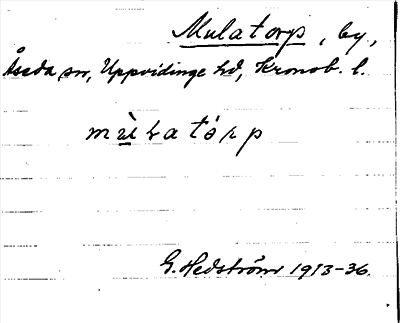 Mulatorp, by,
Åseda sn, Uppvidinge hd, Kronob. l.
G. Hedström 1913-36.